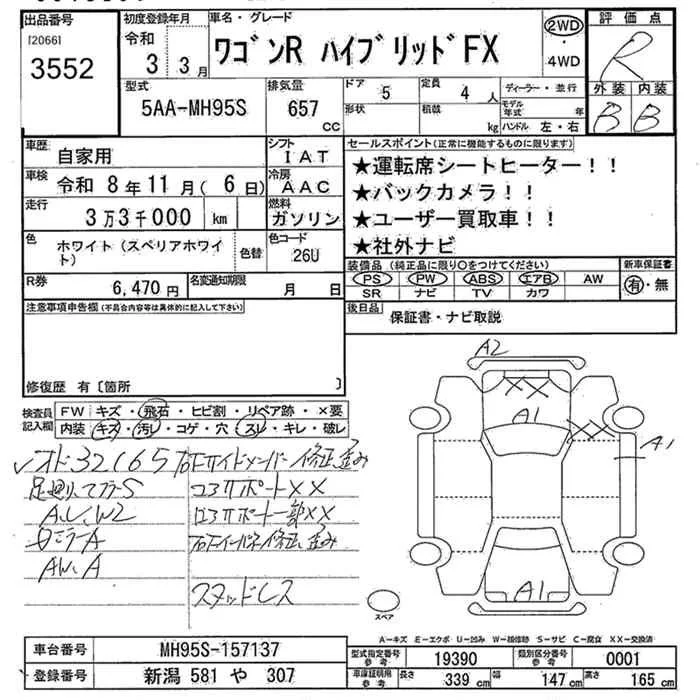 出品番号
[2066]
3552
初度登録年月
令和
3 3月
車名・グレード
ワゴンR ハイブリッドFX
2WD
・
4WD
評価点
R
外装 内装
B B
型式
5AA-MH95S
排気量
657
cc
ドア
5
形状
定員
4 人
積載
kg
ディーラー・並行
モデル年式 年
ハンドル 左・右
車歴
自家用
シフト
IAT
車検
令和 8年11月( 6日)
冷房
AAC
走行
3万3千000 km
燃料
ガソリン
色
ホワイト(スペリアホワイト)
色替
色コード
26U
R券
6,470円
名変通知期限
月 日
セールスポイント(正常に機能するものに限ります)
★運転席シートヒーター!!
★バックカメラ!!
★ユーザー買取車!!
★社外ナビ
装備品(純正品に限り○をつけてください)
PS PW ABS エアB AW
SR ナビ TV カワ
新車保証書
有・無
後日品
保証書・ナビ取説
注意事項申告欄(不具合内容等は具体的に記入して下さい)
修復歴 有〔箇所 〕
検査員
記入欄
FW キズ・飛石・ヒビ割・リペア跡・×要
内装 キズ・汚レ・コゲ・穴・スレ・キレ・破レ
オド32165
右Fサイドメンバー修正歪み
足廻り、マフラーS
コアサポートXX
A、U、W2
ロアサポート一部XX
ミラーA
AW、A
スタッドレス
A2
XX
A1
XX
A1
A1
スペア
A─キズ E─エクボ U─凹み W─補修跡 S─サビ C─腐食 XX─交換済
車台番号
MH95S-157137
登録番号
新潟 581 や 307
型式指定番号
参考
19390
類別区分番号
参考
0001
車庫証明用
参考
長さ
339 cm
幅
147 cm
高さ
165 cm